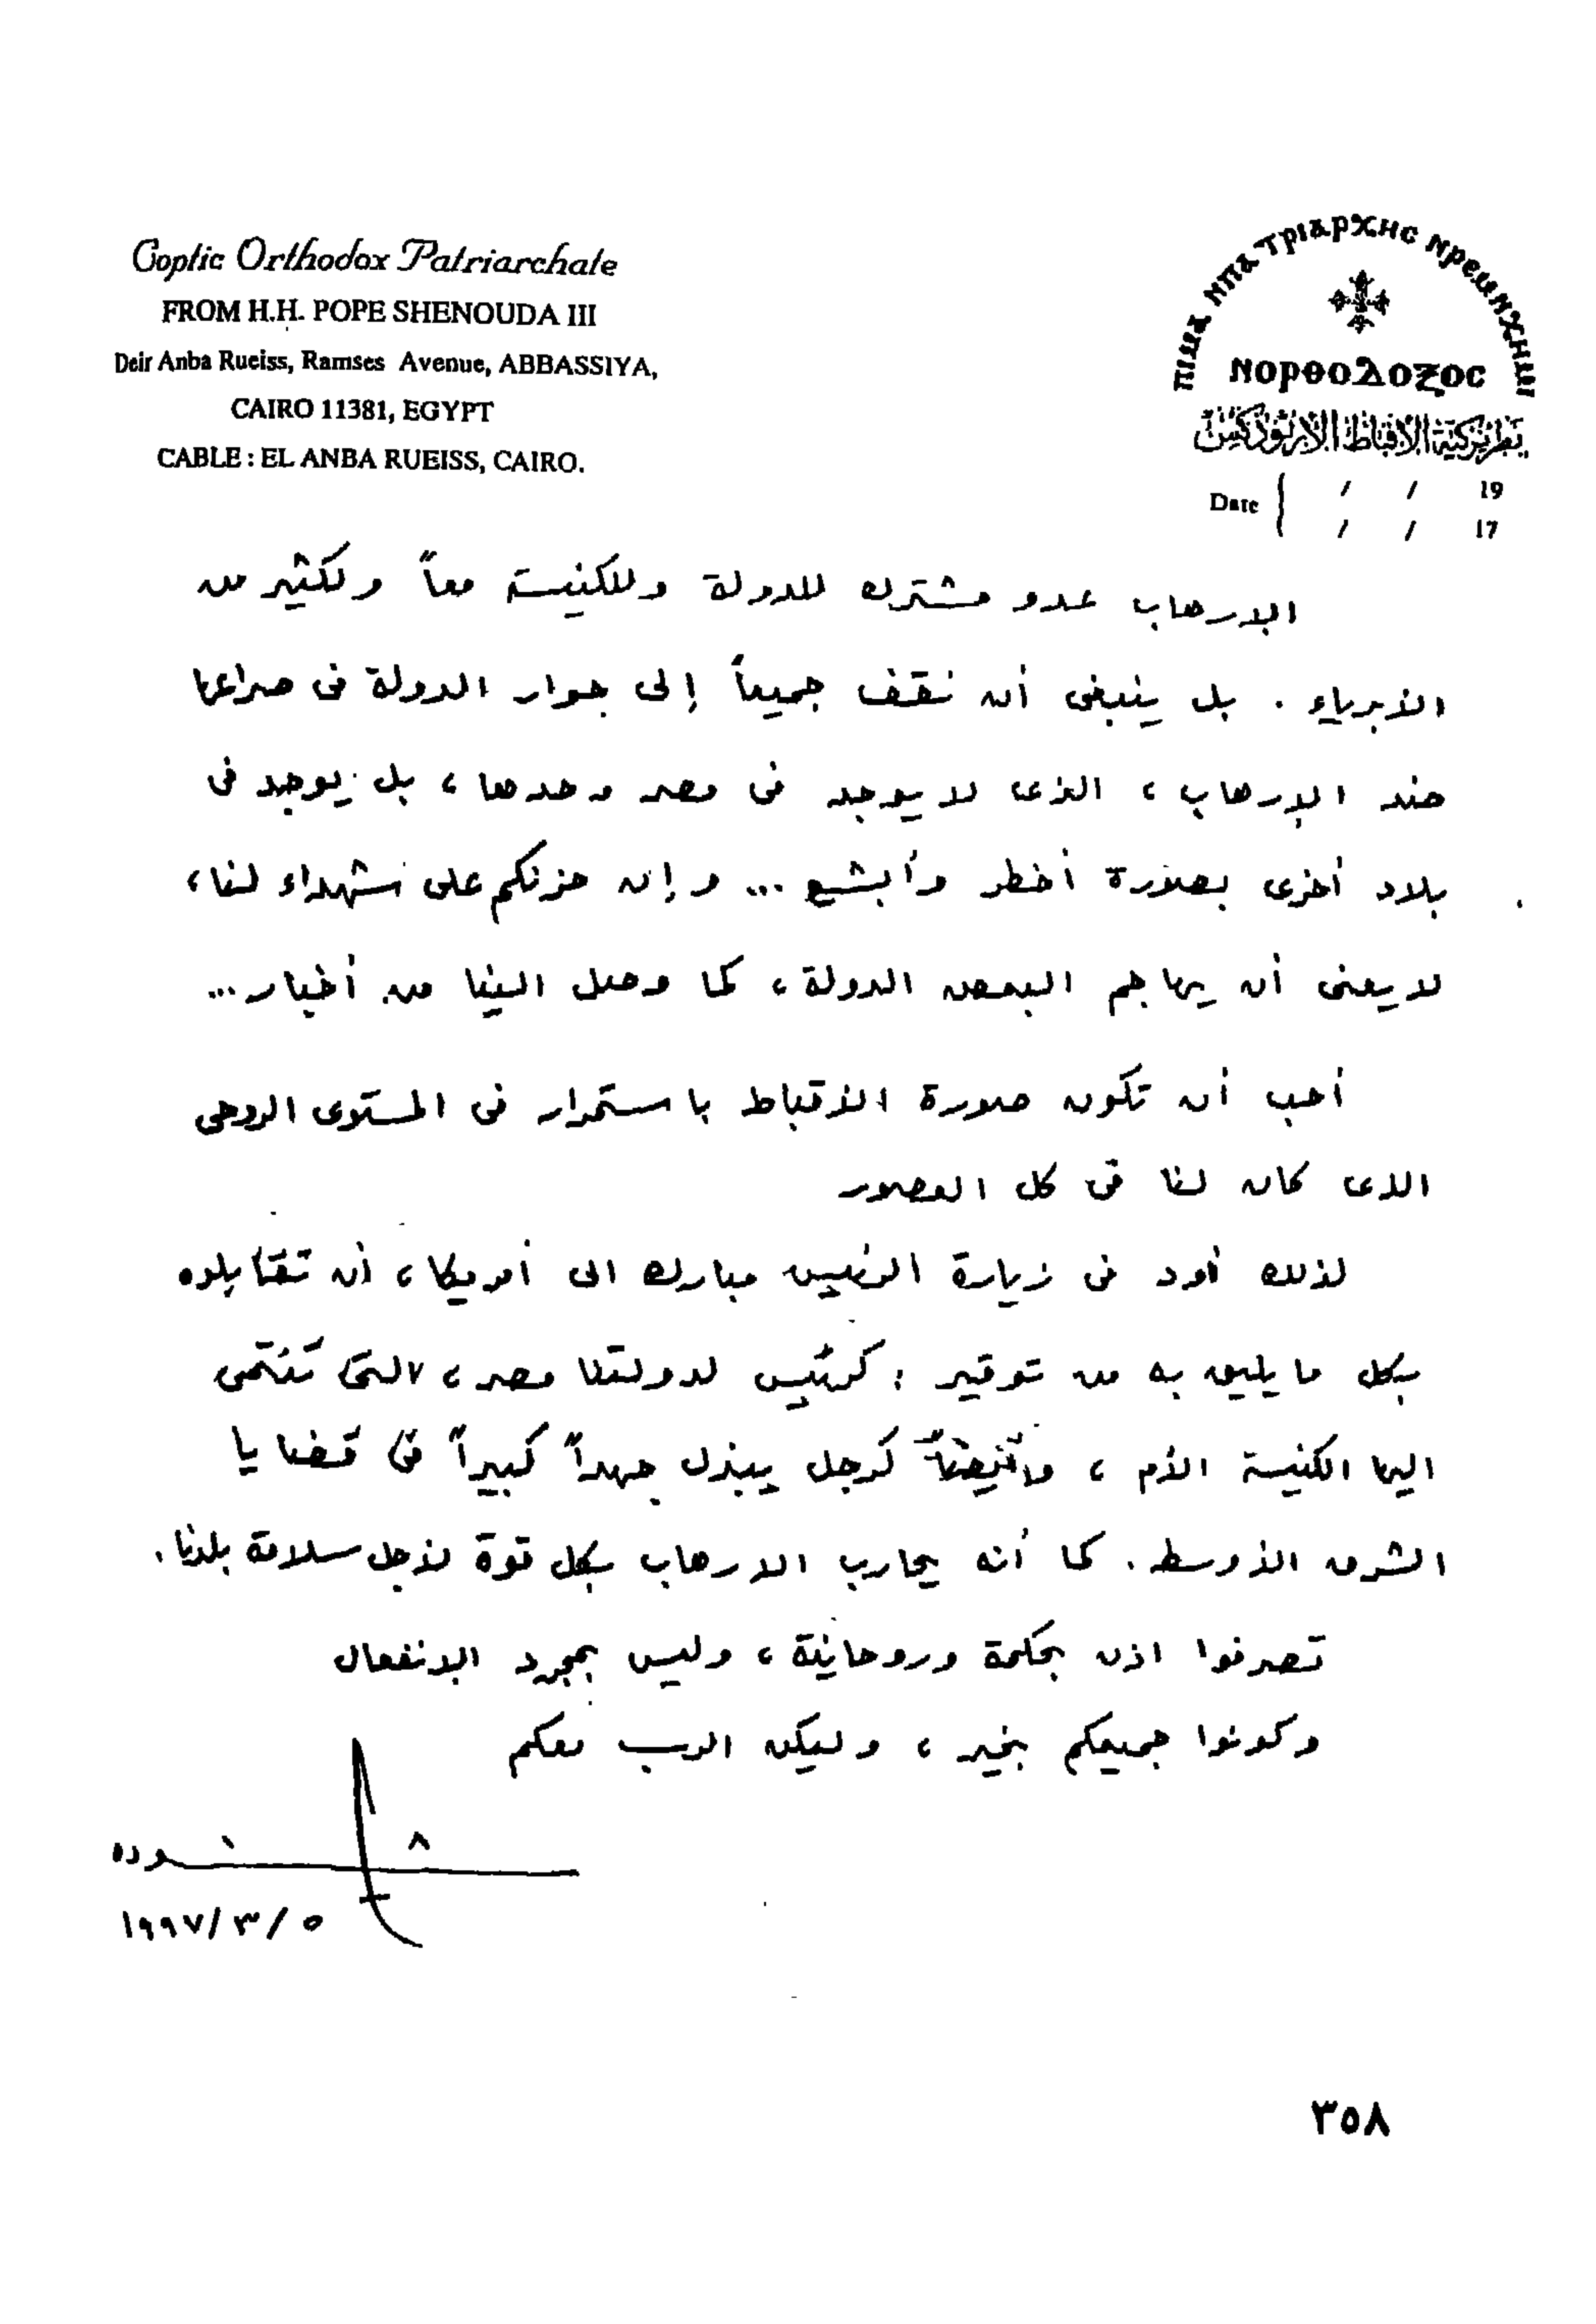 Coptic Orthodox Patriarchate
FROM H.H. POPE SHENOUDA III
Deir Anba Rueiss, Ramses Avenue, ABBASSIYA,
CAIRO 11381, EGYPT
CABLE : EL ANBA RUEISS, CAIRO.
ⲛⲟⲣⲑⲟⲇⲟⲝⲟⲥ
بطريركية الأقباط الأرثوذكس
Date / / 19
/ / 17
الإرهاب عدو مشترك للدولة وللكنيسة معاً ولكثير من
الأبرياء . بل ينبغى أن نقف جميعاً إلى جوار الدولة فى صراعها
ضد الإرهاب ، الذى لا يوجد فى مصر وحدها ، بل يوجد فى
بلاد أخرى بصورة أخطر وأبشع ... وإن حزنكم على شهداء لنا ،
لا يعنى أن يهاجم البعض الدولة ، كما وصل الينا من أخبار ...
أحب أن تكون صورة الأقباط باستمرار فى المستوى الروحى
الذى كان لنا فى كل العصور
لذلك أود فى زيارة الرئيس مبارك الى أمريكا ، أن تقابلوه
بكل ما يليق به من توقير : كرئيس لدولتنا مصر ، التى تنتمى
اليها الكنيسة الأم ، وأيضاً كرجل يبذل جهداً كبيراً فى قضايا
الشرق الأوسط . كما أنه يحارب الارهاب بكل قوة لأجل سلامة بلدنا .
تصرفوا اذن بحكمة وروحانية ، وليس بمجرد الإنفعال
وكونوا جميعكم بخير ، وليكن الرب معكم
شنوده
٥ / ٣ / ١٩٩٧
٣٥٨